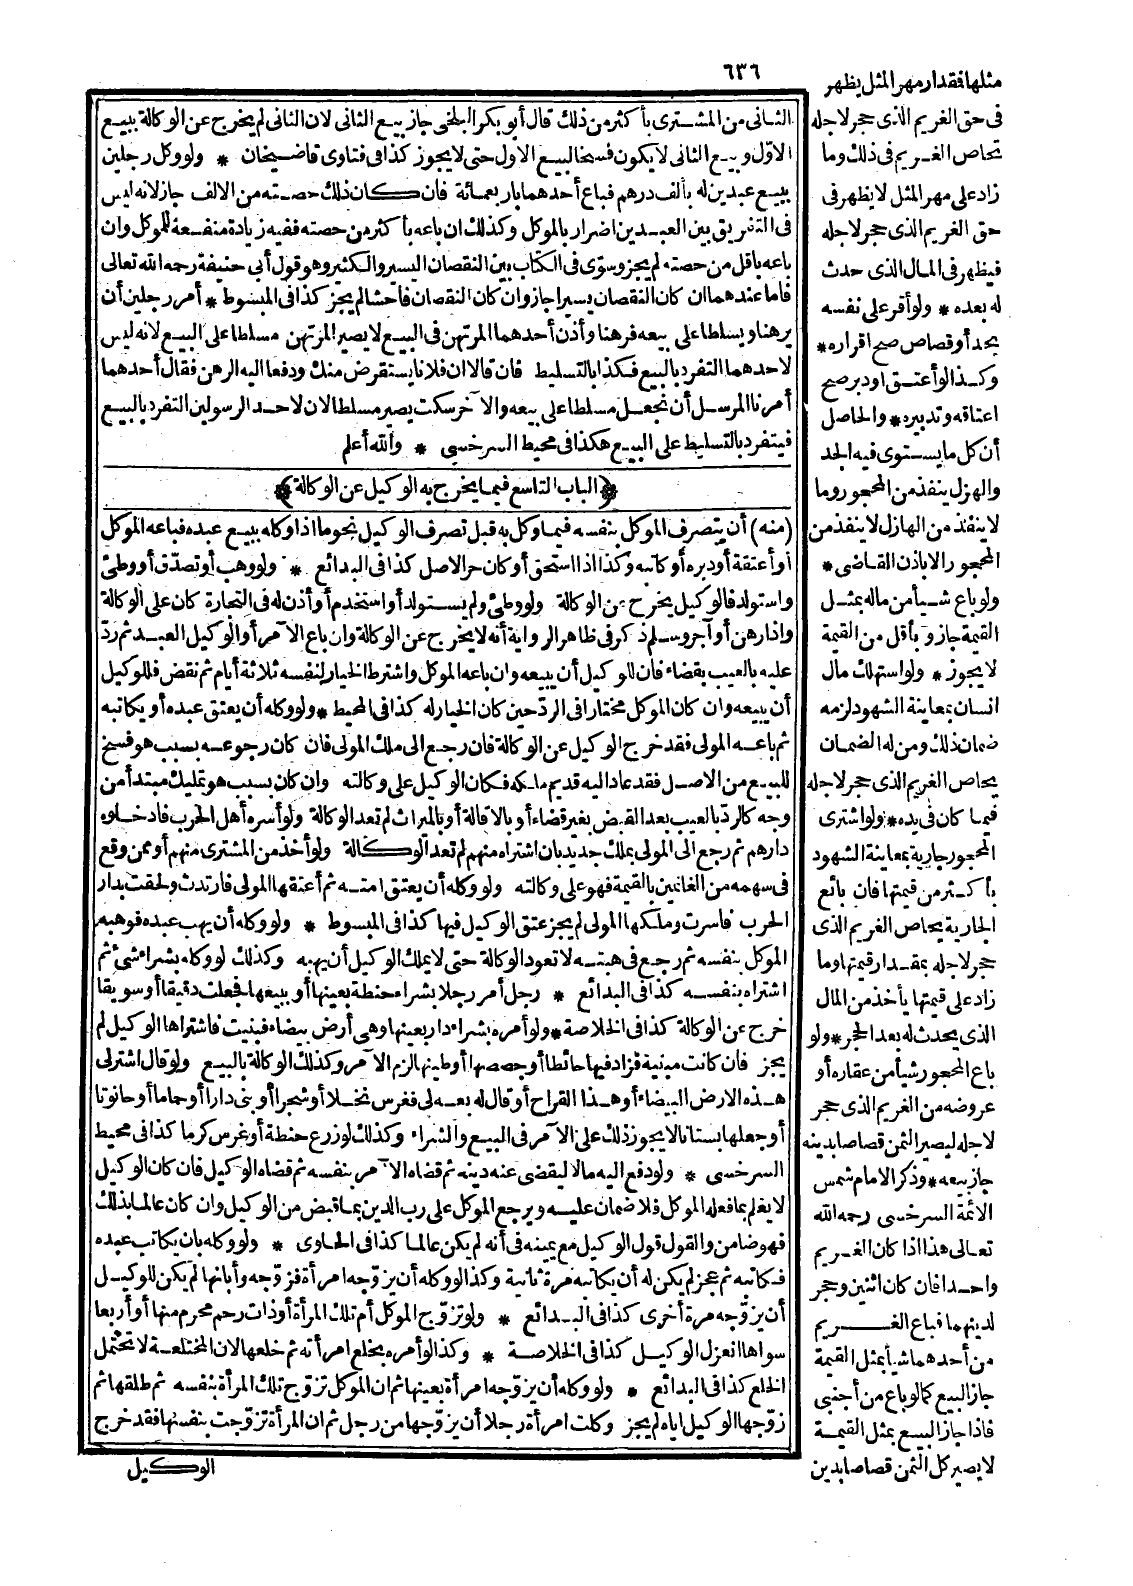 ٦٣٦
الثانى من المشترى بأكثر من ذلك قال أبو بكر البلخى جاز بيع الثانى لان الثانى لم يخرج عن الوكالة ببيع
الاوّل وبيع الثانى لا يكون فسخا لبيع الاول حتى لا يجوز كذا فى فتاوى قاضيخان * ولو وكل رجلين
ببيع عبدين له بألف درهم فباع أحدهما بأربعمائة فان كان ذلك حصته من الالف جاز لانه ليس
فى التفريق بين العبدين اضرار بالموكل وكذلك ان باعه بأكثر من حصته ففيه زيادة منفعة للموكل وان
باعه بأقل من حصته لم يجز وسوّى فى الكتاب بين النقصان اليسير والكثير وهو قول أبى حنيفة رحمه الله تعالى
فاما عندهما ان كان النقصان يسيرا جاز وان كان النقصان فاحشا لم يجز كذا فى المبسوط * أمر رجلين أن
يرهنا ويسلطا على بيعه فرهنا وأذن أحدهما المرتهن فى البيع لا يصير المرتهن مسلطا على البيع لانه ليس
لاحدهما التفرد بالبيع فكذا بالتسليط فان قالا ان فلانا يستقرض منك ودفعا اليه الرهن فقال أحدهما
أمرنا المرسل أن نجعل مسلطا على بيعه والآخر سكت يصير مسلطا لان لاحد الرسولين التفرد بالبيع
فيتفرد بالتسليط على البيع هكذا فى محيط السرخسى * والله أعلم
﴿الباب التاسع فيما يخرج به الوكيل عن الوكالة﴾
(منه) أن يتصرف الموكل بنفسه فيما وكل به قبل تصرف الوكيل نحو ما اذا وكله ببيع عبده فباعه الموكل
أو أعتقه أو دبره أو كاتبه وكذا اذا استحق أو كان حر الاصل كذا فى البدائع * ولو وهب أو تصدّق أو وطئ
واستولد فالوكيل يخرج عن الوكالة ولو وطئ ولم يستولد أو استخدم أو أذن له فى التجارة كان على الوكالة
واذا رهن أو آجر وسلم ذكر فى ظاهر الرواية أنه لا يخرج عن الوكالة وان باع الآمر أو الوكيل العبد ثم ردّ
عليه بالعيب بقضاء فان للوكيل أن يبيعه وان باعه الموكل واشترط الخيار لنفسه ثلاثة أيام ثم نقض فللوكيل
أن يبيعه وان كان الموكل مختارا فى الردّ حين كان الخيار له كذا فى المحيط * ولو وكله أن يعتق عبده أو يكاتبه
ثم باعه المولى فقد خرج الوكيل عن الوكالة فان رجع الى ملك المولى فان كان رجوعه بسبب هو فسخ
للبيع من الاصل فقد عاد اليه قديم ملكه فكان الوكيل على وكالته وان كان بسبب هو تمليك مبتدأ من
وجه كالردّ بالعيب بعد القبض بغير قضاء أو بالاقالة أو بالميراث لم تعد الوكالة ولو أسره أهل الحرب فادخلوه
دارهم ثم رجع الى المولى بملك جديد بان اشتراه منهم لم تعد الوكالة ولو أخذ من المشترى منهم أو ممن وقع
فى سهمه من الغانمين بالقيمة فهو على وكالته ولو وكله أن يعتق امته ثم أعتقها المولى فارتدت ولحقت بدار
الحرب فاسرت وملكها المولى لم يجز عتق الوكيل فيها كذا فى المبسوط * ولو وكله أن يهب عبده فوهبه
الموكل بنفسه ثم رجع فى هبته لا تعود الوكالة حتى لا يملك الوكيل أن يهبه وكذلك لو وكله بشراء شئ ثم
اشتراه بنفسه كذا فى البدائع * رجل أمر رجلا بشراء حنطة بعينها أو ببيعها فجعلت دقيقا أو سويقا
خرج عن الوكالة كذا فى الخلاصة * ولو أمره بشراء دار بعينها وهى أرض بيضاء فبنيت فاشتراها الوكيل لم
يجز فان كانت مبنية فزاد فيها حائطا أو جصصها أو طينها لزم الآمر وكذلك الوكالة بالبيع ولو قال اشتر لى
هذه الارض البيضاء أو هذا القراح أو قال له بعه لى فغرس نخلا أو شجرا أو بنى دارا أو حماما أو حانوتا
أو جعلها بستانا لا يجوز ذلك على الآمر فى البيع والشراء وكذلك لو زرع حنطة أو غرس كرما كذا فى محيط
السرخسى * ولو دفع اليه مالا ليقضى عنه دينه ثم قضاه الآمر بنفسه ثم قضاه الوكيل فان كان الوكيل
لا يعلم بما فعله الموكل فلا ضمان عليه ويرجع الموكل على رب الدين بما قبض من الوكيل وان كان عالما بذلك
فهو ضامن والقول قول الوكيل مع يمينه فى أنه لم يكن عالما كذا فى الحاوى * ولو وكله بان يكاتب عبده
فكاتبه ثم عجز لم يكن له أن يكاتبه مرة ثانية وكذا لو وكله أن يزوّجه امرأة فزوّجه وأبانها لم يكن للوكيل
أن يزوّجه مرة أخرى كذا فى البدائع * ولو تزوّج الموكل أم تلك المرأة أو ذات رحم محرم منها أو أربعا
سواها انعزل الوكيل كذا فى الخلاصة * وكذا لو أمره بخلع امرأته ثم خلعها لان المختلعة لا تحتمل
الخلع كذا فى البدائع * ولو وكله أن يزوّجه امرأة بعينها ثم ان الموكل تزوّج تلك المرأة بنفسه ثم طلقها ثم
زوّجها الوكيل اياه لم يجز وكلت امرأة رجلا أن يزوّجها من رجل ثم ان المرأة تزوّجت بنفسها فقد خرج
الوكيل
مثلها فقدار مهر المثل يظهر
فى حق الغريم الذى حجر لاجله
تحاص الغريم فى ذلك وما
زاد على مهر المثل لا يظهر فى
حق الغريم الذى حجر لاجله
فيظهر فى المال الذى حدث
له بعده * ولو أقر على نفسه
بحد أو قصاص صح اقراره *
وكذا لو أعتق أو دبر صح
اعتاقه وتدبيره * والحاصل
أن كل ما يستوى فيه الجد
والهزل ينفذ من المحجور وما
لا ينفذ من الهازل لا ينفذ من
المحجور الا باذن القاضى *
ولو باع شيأ من ماله بمثل
القيمة جاز وبأقل من القيمة
لا يجوز * ولو استهلك مال
انسان بمعاينة الشهود لزمه
ضمان ذلك ومن له الضمان
يحاص الغريم الذى حجر لاجله
فيما كان فى يده * ولو اشترى
المحجور جارية بمعاينة الشهود
بأكثر من قيمتها فان بائع
الجارية يحاص الغريم الذى
حجر لاجله بمقدار قيمتها وما
زاد على قيمتها يأخذ من المال
الذى يحدث له بعد الحجر * ولو
باع المحجور شيأ من عقاره أو
عروضه من الغريم الذى حجر
لاجله ليصير الثمن قصاصا بدينه
جاز بيعه * وذكر الامام شمس
الائمة السرخسى رحمه الله
تعالى هذا اذا كان الغريم
واحدا فان كان اثنين وحجر
لدينهما فباع الغريم
من أحدهما شيأ بمثل القيمة
جاز البيع كما لو باع من أجنبى
فاذا جاز البيع بمثل القيمة
لا يصير كل الثمن قصاصا بدين